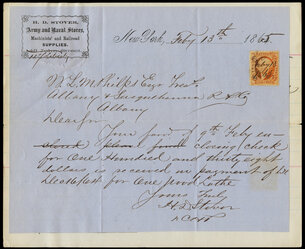 H. D. STOVER,
Army and Naval Stores,
Machinists' and Railroad
SUPPLIES,
New York, Feby 13th 1865
W L M Phelps Esq Treas.
Albany & Susquehanna R R Co
Albany
Dear Sir
Your favor of 9th Feby en-
closing check
for One Hundred and thirty eight
dollars is received in payment of
for One Wood Lathe
Yours Truly
H D Stover